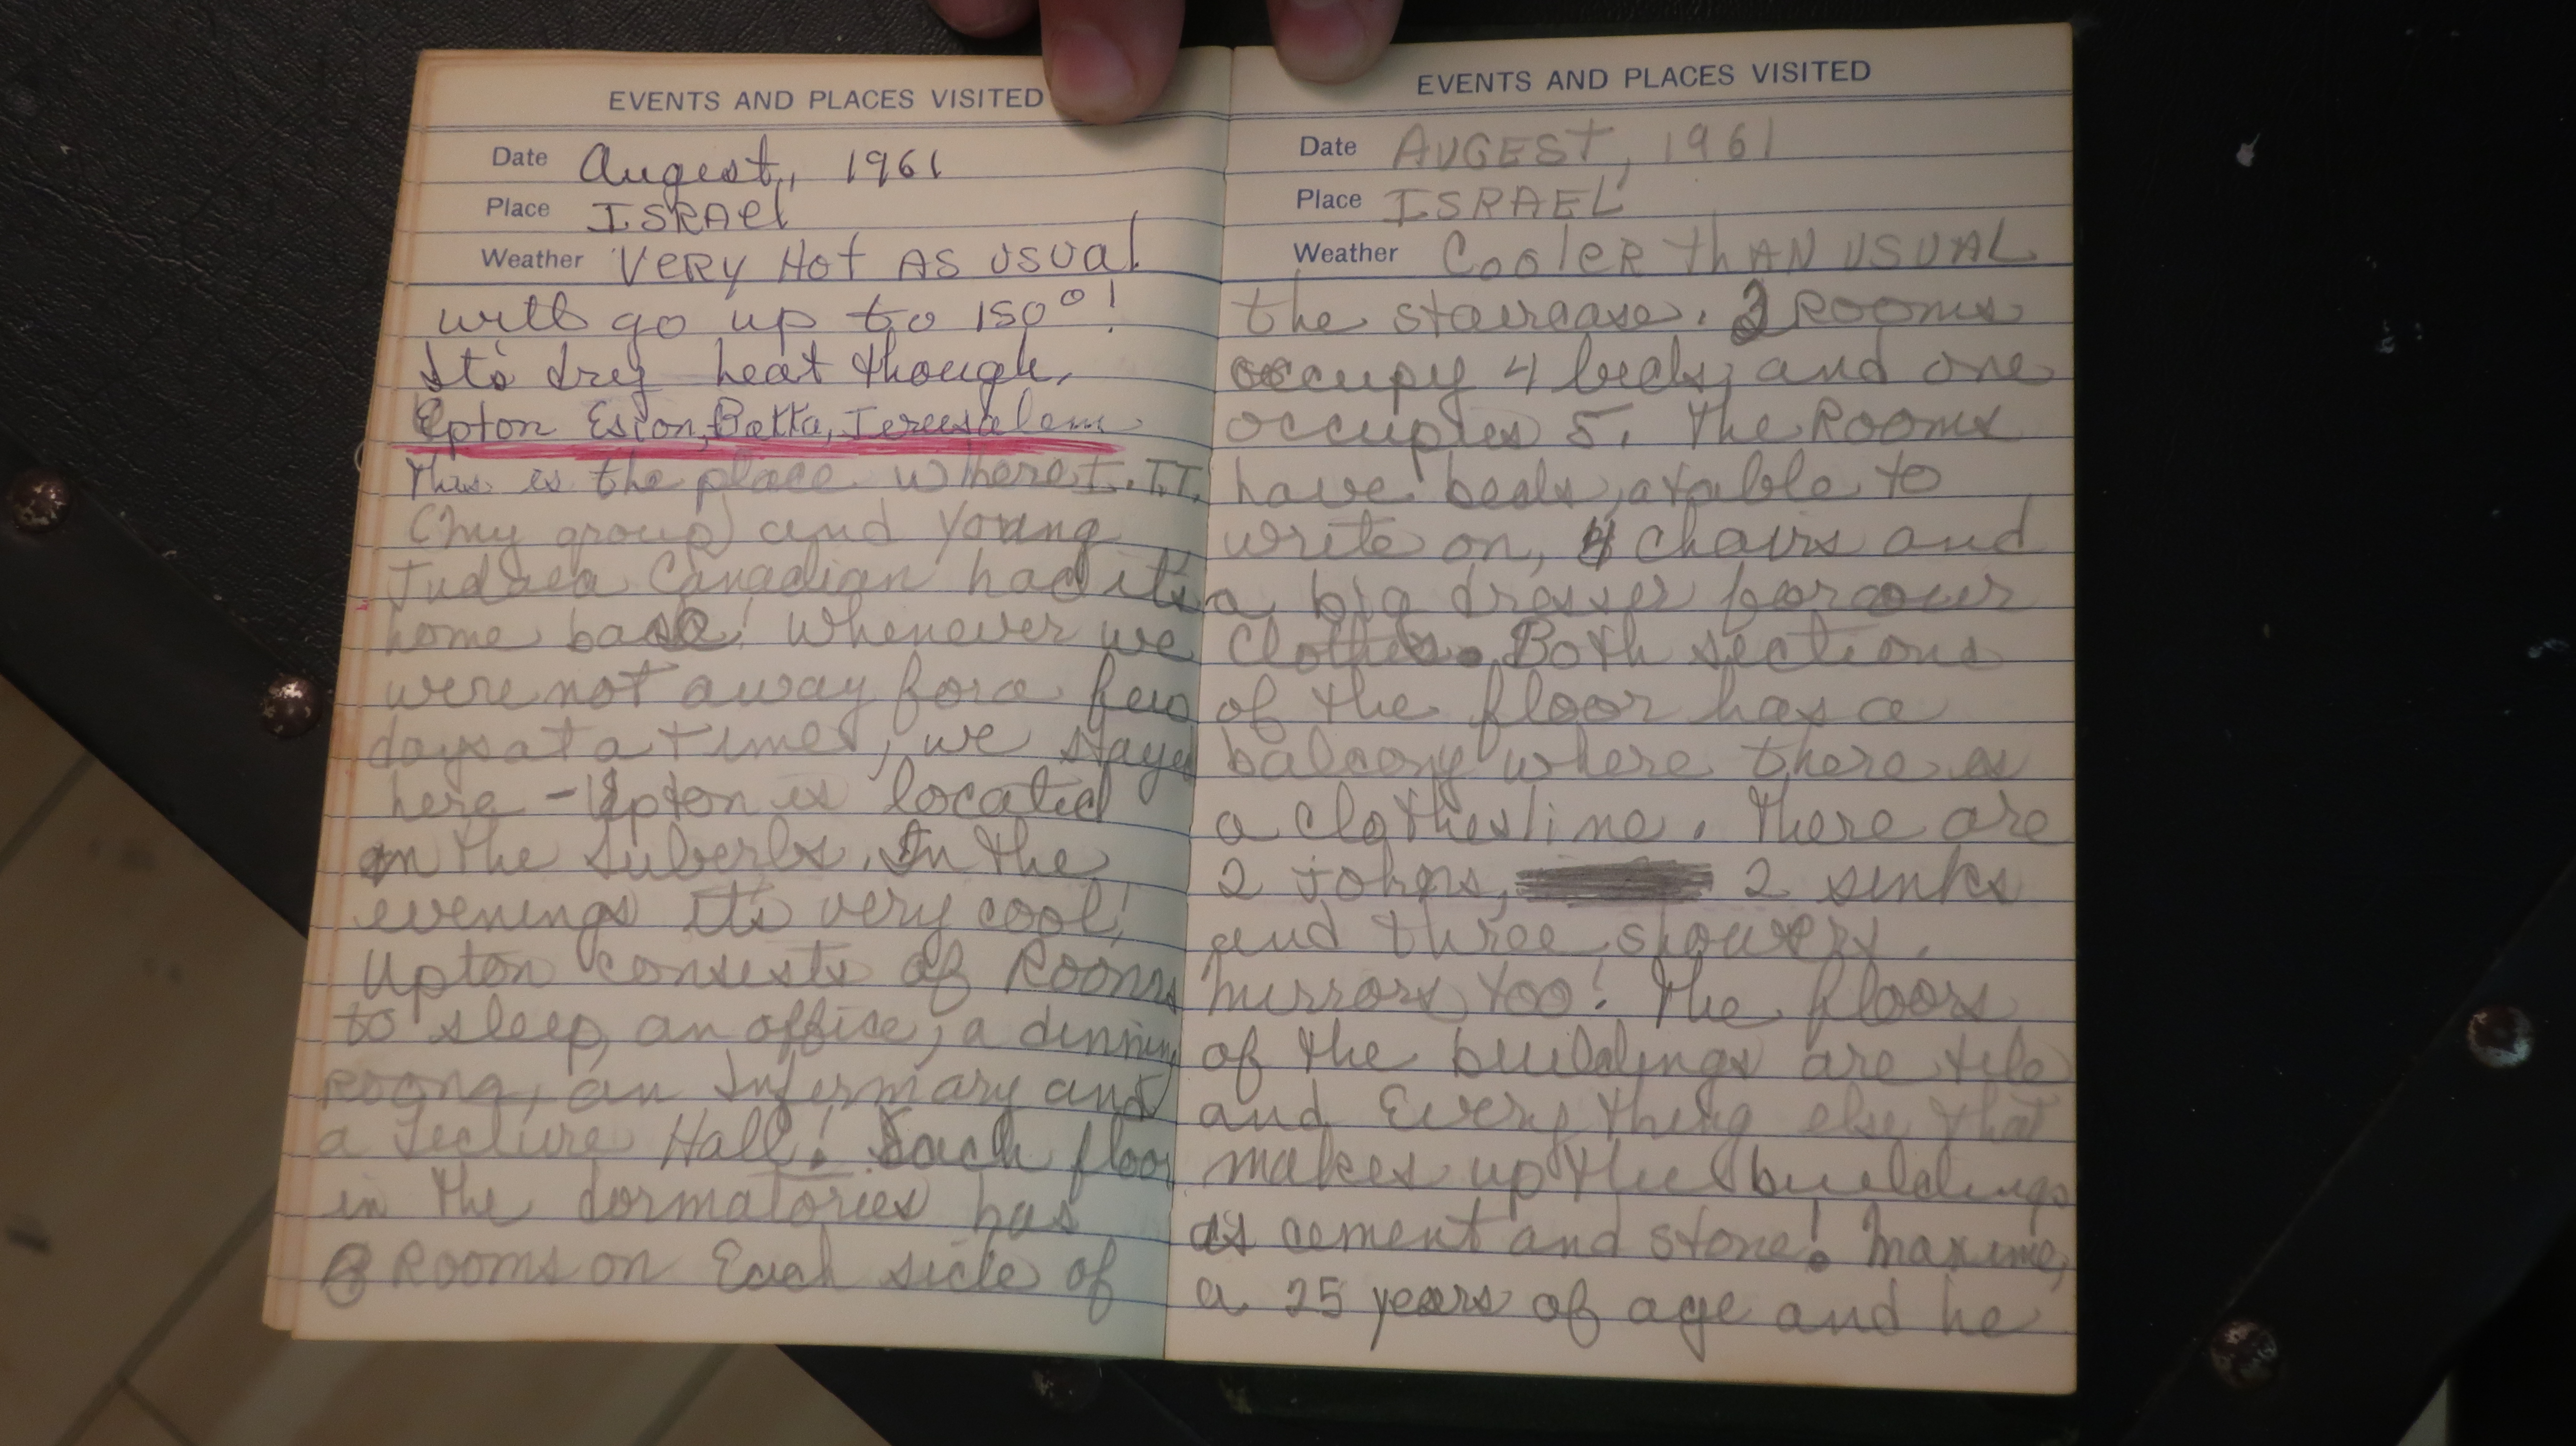 EVENTS AND PLACES VISITED
Date Augest, 1961
Place ISRAEl
Weather VERY Hot AS usual
will go up to 150°!
It's drey heat though.
Epton Esion, Batta, Jereusalem
This is the place where I.I.I.
(my group) and Young
Judaea Canadian had it's
home base! Whenever we
were not away for a few
days at a time, we stayed
here - Upton is located
in the suberbs. In the
evenings it's very cool!
Upton consists of Rooms
to sleep, an office, a dinning
Room, an Infermary and
a Lecture Hall! Each floor
in the dormatories has
Rooms on Each side of
EVENTS AND PLACES VISITED
Date AUGEST, 1961
Place ISRAEL
Weather CooleR thAN USUAL
the staircase. 3 Rooms
occupy 4 beds, and one
occupies 5. The Rooms
have beds, a table to
write on, 4 chairs and
a big dresser for our
Clothes. Both sections
of the floor has a
balcony where there is
a clothesline. There are
2 johns, 2 sinks
and three showers.
mirrors too! The floors
of the buildings are tile
and Every thing else that
makes up the buildings
is cement and stone! Maxime,
a 25 years of age and he